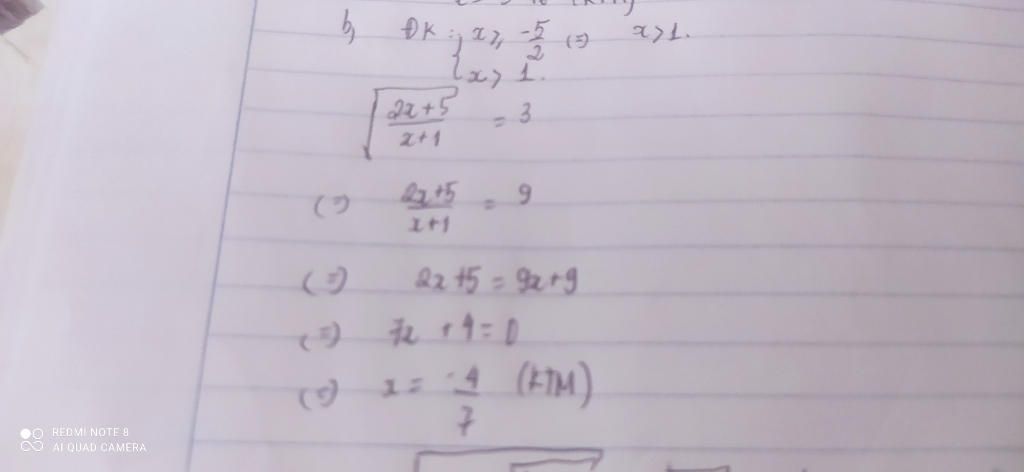 b, ĐK: { x ≥ -5/2 (=) x > 1.
{ x > 1.
√((2x+5)/(x+1)) = 3
(=) (2x+5)/(x+1) = 9
(=) 2x+5 = 9x+9
(=) 7x + 4 = 0
(=) x = -4/7 (KTM)
REDMI NOTE 8
AI QUAD CAMERA